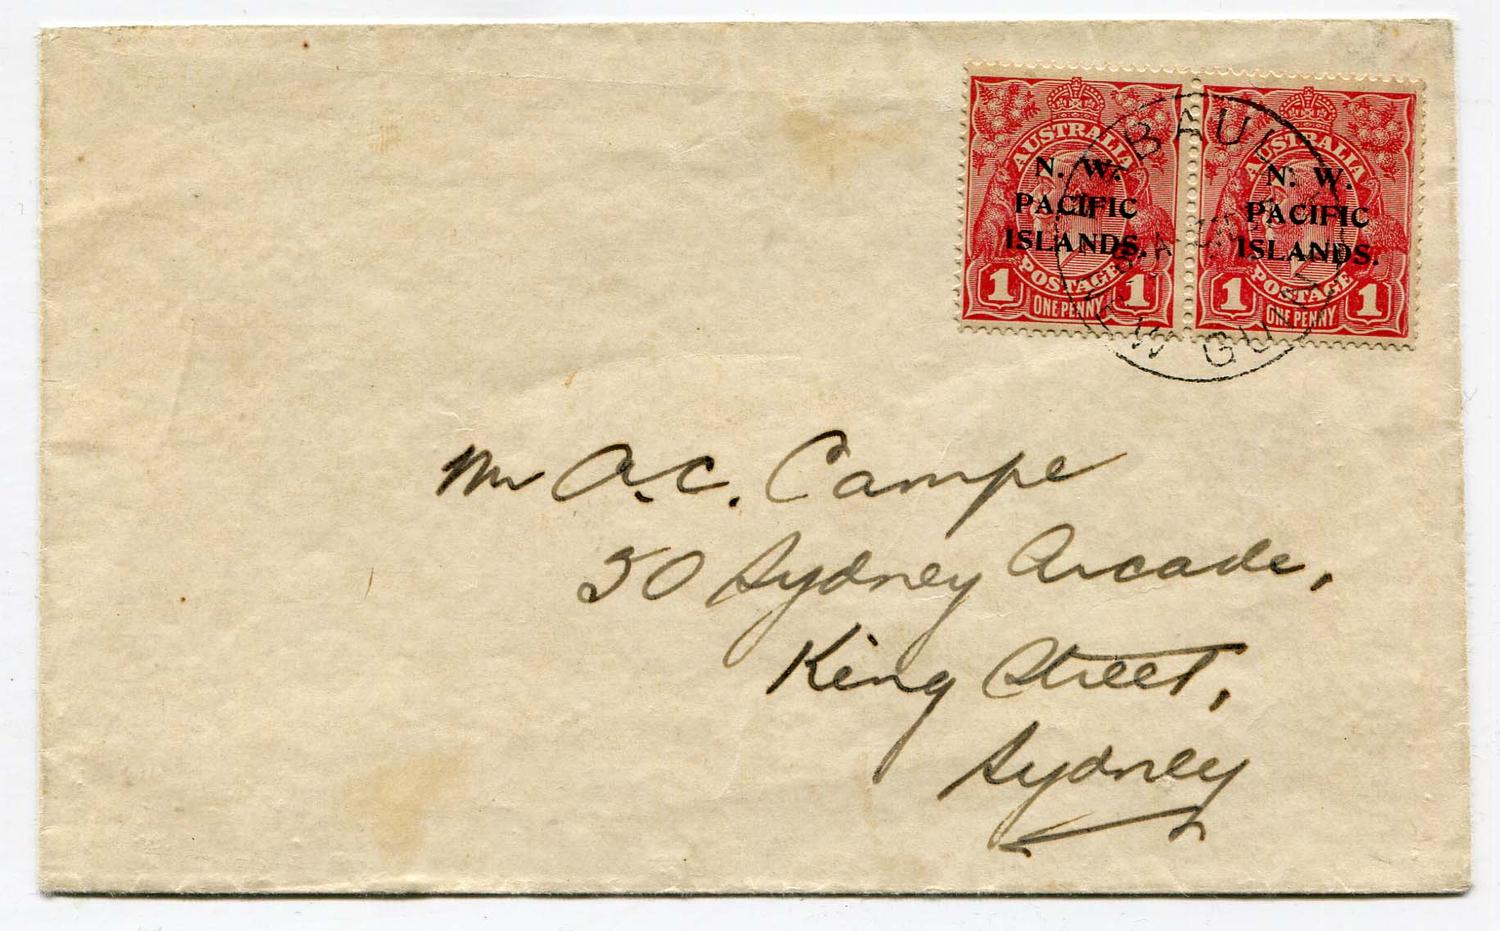 AUSTRALIA
N. W.
PACIFIC
ISLANDS.
POSTAGE
1 ONE PENNY 1
AUSTRALIA
N. W.
PACIFIC
ISLANDS.
POSTAGE
1 ONE PENNY 1
Mr A.C. Campe
50 Sydney Arcade,
King Street,
Sydney